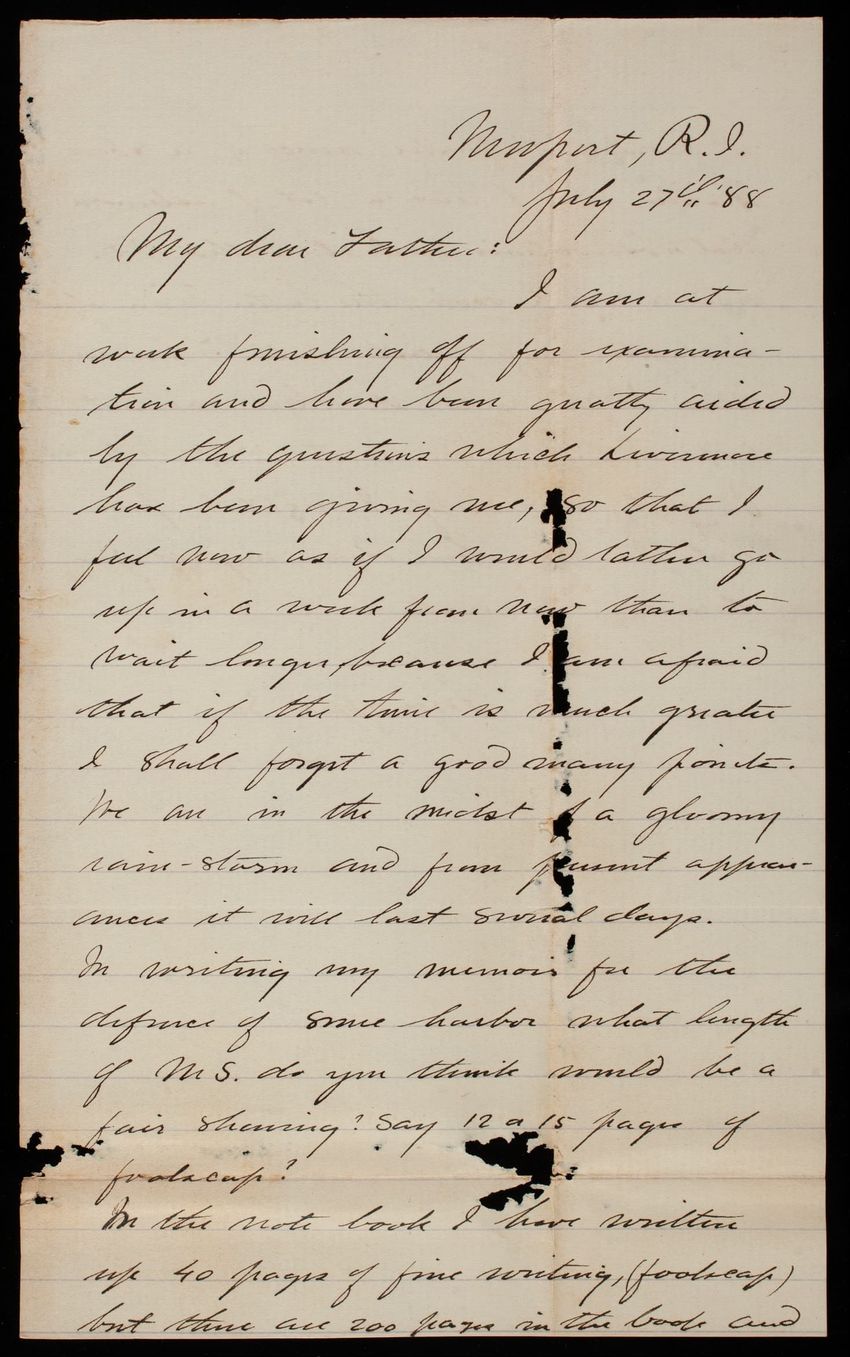 Newport, R.I.
July 27th '88
My dear Father:
I am at
work finishing off for examina-
tion and have been greatly aided
by the questions which Livermore
has been giving me, so that I
feel now as if I would rather go
up in a week from now than to
wait longer, because I am afraid
that if the time is much greater
I shall forget a good many points.
We are in the midst of a gloomy
rain-storm and from present appear-
ances it will last several days.
In writing my memoir for the
defence of some harbor what length
of MS. do you think would be a
fair showing? Say 12 a 15 pages of
foolscap?
In the note book I have written
up 40 pages of fine writing, (foolscap)
but there are 200 pages in the book and